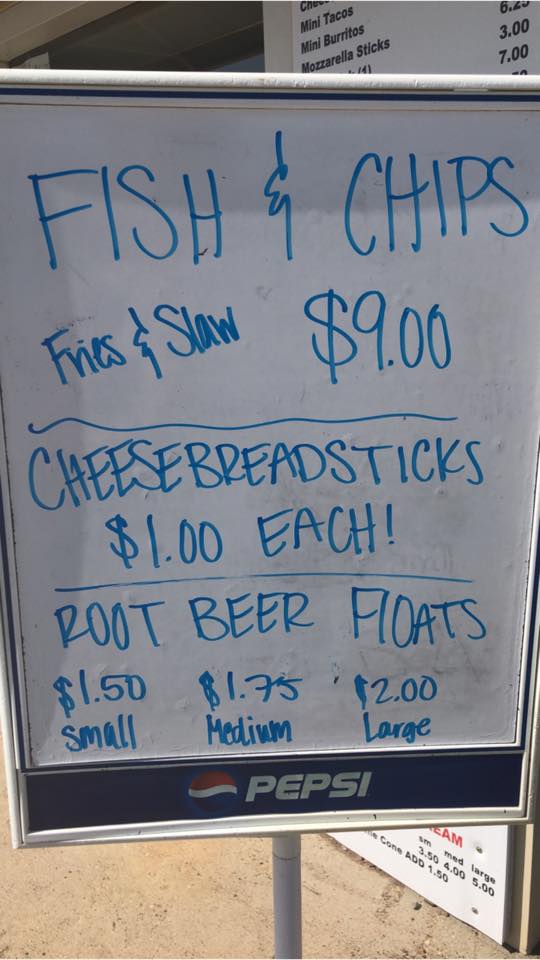 Mini Tacos 6.25
Mini Burritos 3.00
Mozzarella Sticks 7.00
(1)
FISH & CHIPS
Fries & Slaw $9.00
CHEESEBREADSTICKS
$1.00 EACH!
ROOT BEER FLOATS
$1.50 $1.75 $2.00
Small Medium Large
PEPSI
sm med large
3.50 4.00 5.00
Cone ADD 1.50